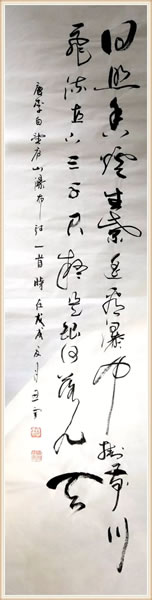 日照香炉生紫烟遥看瀑布挂前川
飞流直下三千尺疑是银河落九天
唐李白望庐山瀑布诗一首时在戊戌